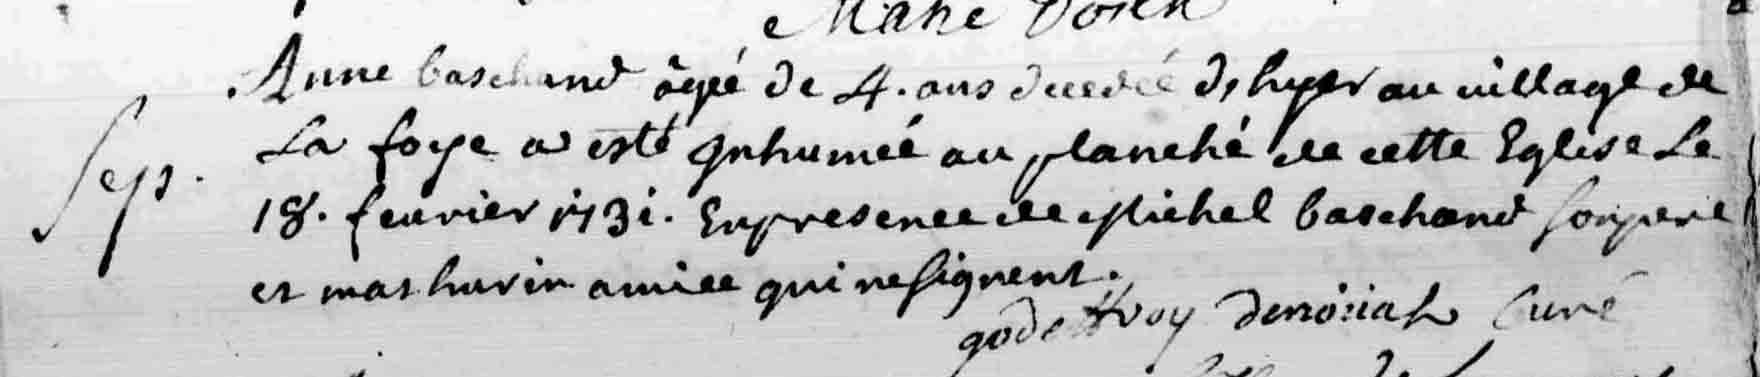 Anne baschand âgée de 4. ans decedée d'hyer au village de
La foye a esté Inhumeé au planché de cette Eglise Le
Sep.
18. feurier 1731. En presence de Michel baschand son pere
et mathurin amice qui ne signent.
godeffroy Curé